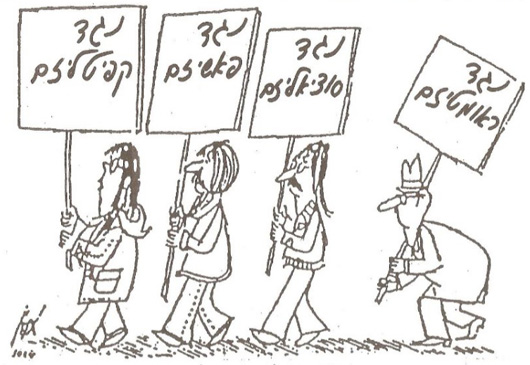 נגד
קפיטליזם
נגד
פאשיזם
נגד
סוציאליזם
נגד
ראומטיזם